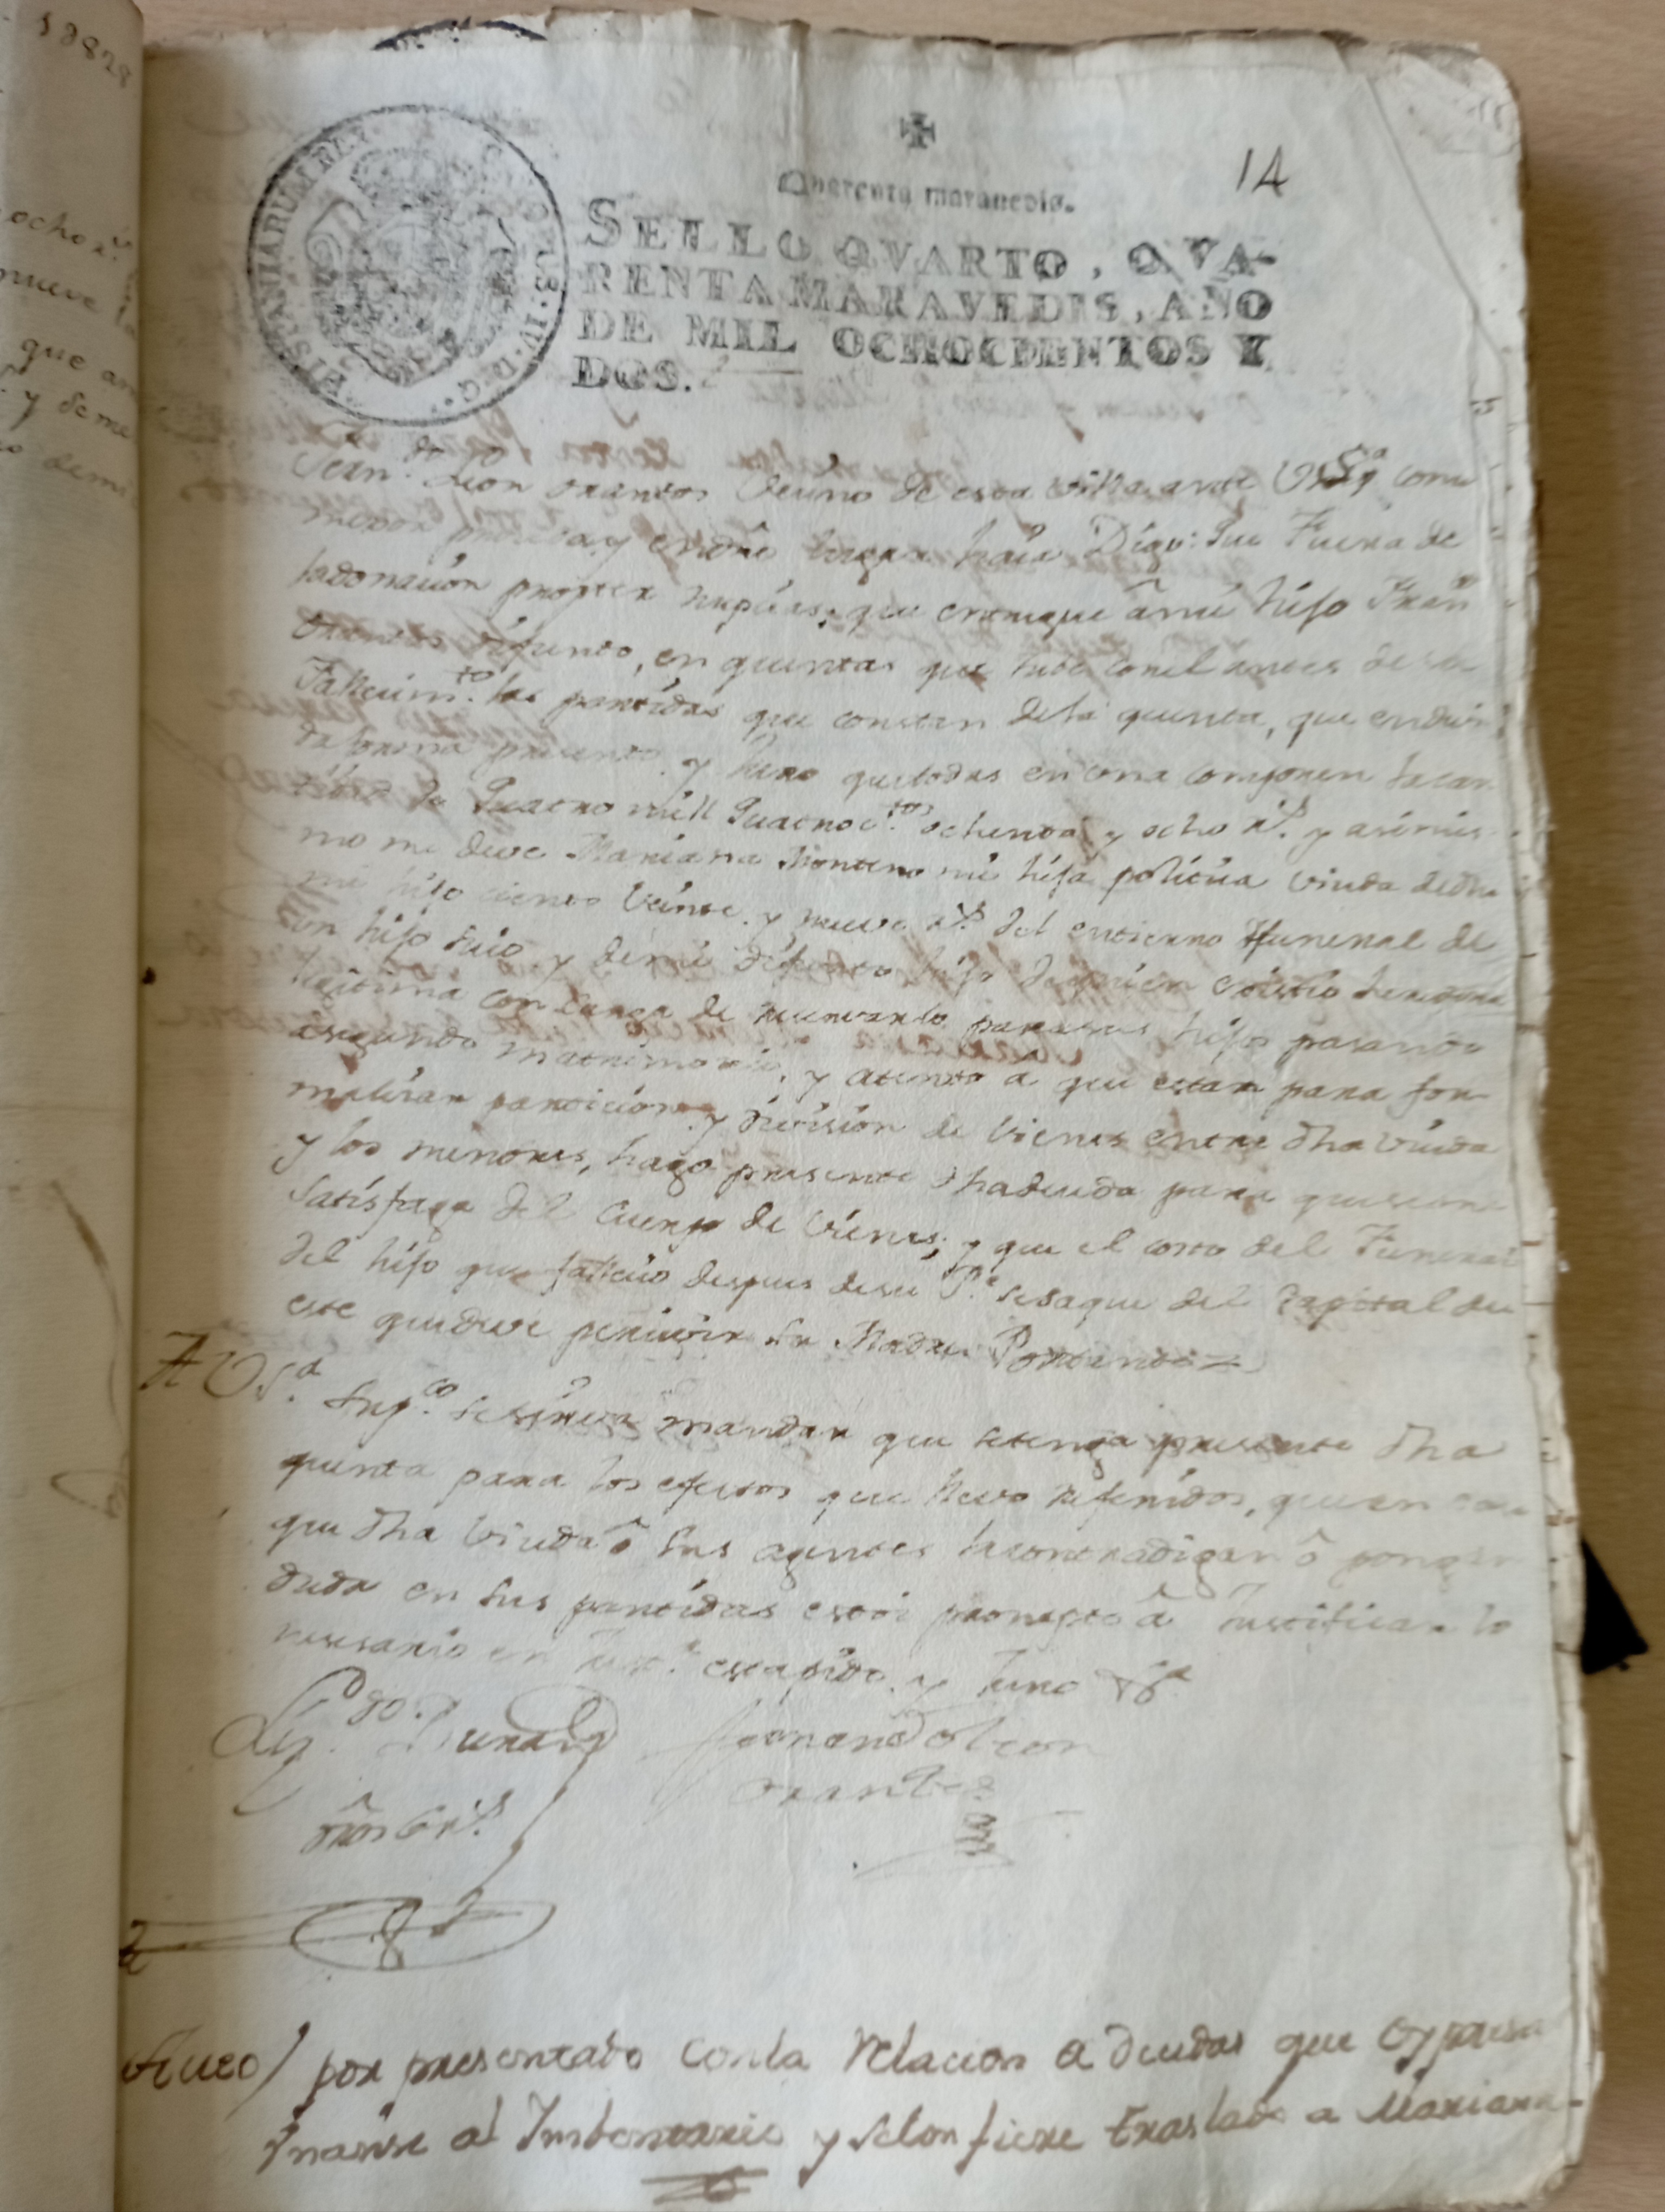 18828
14
HISPANIARUM REX
CAROLUS · IV · D · G ·
Quarenta maravedis.
SELLO QVARTO, QVA-
RENTA MARAVEDIS, AÑO
DE MIL OCHOCIENTOS Y
DOS.
Fern.do León orantos Vecino de esta Villa ante V.S.a como
mejor proceda y en dro lugar haia Digo: Que Fuera de
la donación propter nupcias, que entregue â mi hijo Fran.co
Orantos difunto, en quentas que tube con el antes de su
Fallecim.to las partidas que constan de la quenta, que en devi-
da forma presento y Juro que todas en una componen la can-
tidad de Quatro mill Quatroc.tos ochenta y ocho r.s y asimis-
mo me deve Mariana Montero mi hija politica viuda de dho
mi hijo ciento Veinte y nueve r.s del entierro Funeral de
un hijo suio y de mi difunto hijo de quien
legitima con carga de reservarlo para sus hijos pasando
a segundo matrimonio, y atento a que estan para for-
malizar particion y division de vienes entre dha viuda
y los menores, hago presente dha deuda para que se me
satisfaga del cuerpo de vienes, y que el costo del Funeral
del hijo que fallecio despues de su P.e se saque del Capital de
este que deve percivir su Madre Por tanto
A V.S.a
Sup.co se sirva mandar que se tenga presente dha
quenta para los efectos que llevo referidos, que en caso
que dha Viuda ô sus agentes la contradigan ô pongan
duda en sus partidas estoi prompto â Justificar lo
nesesario en Just.a esta pido y Juro V.a
Liz.do
Fernando Leon
Orantos
Auto / por presentado con la relacion a deudas que expresa
Vnanse al Imbentario y se confiere traslado a Mariana